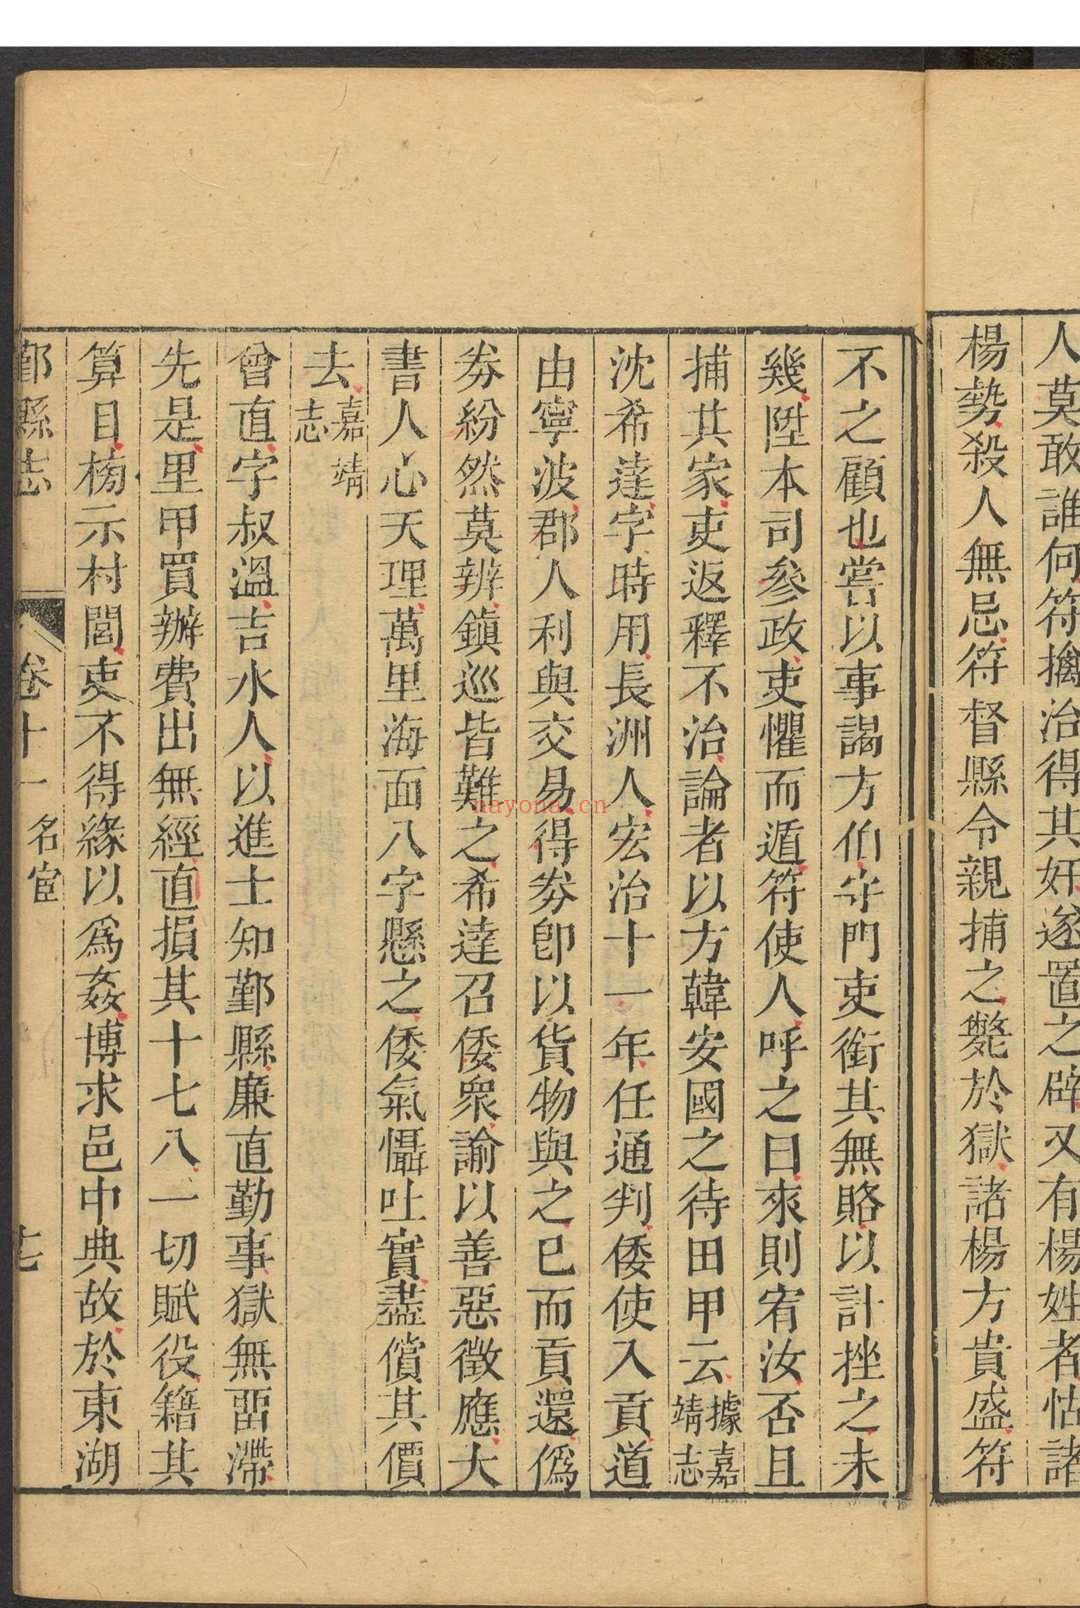 人莫敢誰何符擒治得其奸遂置之辟又有楊姓者怙諸
楊勢殺人無忌符督縣令親捕之斃於獄諸楊方貴盛符
不之顧也嘗以事謁方伯守門吏銜其無賂以計挫之未
幾陞本司參政吏懼而遁符使人呼之曰來則宥汝否且
捕其家吏返釋不治論者以方韓安國之待田甲云據嘉靖志
沈希達字時用長洲人宏治十一年任通判倭使入貢道
由寧波郡人利與交易得劵卽以貨物與之已而貢還僞
劵紛然莫辨鎭巡皆難之希達召倭衆諭以善惡徵應大
書人心天理萬里海面八字懸之倭氣懾吐實盡償其價
去嘉靖志
曾直字叔溫吉水人以進士知鄞縣廉直勤事獄無畱滯
先是里甲買辦費出無經直損其十七八一切賦役籍其
算目榜示村閭吏不得緣以爲姦博求邑中典故於東湖
鄞縣志 卷十一 名宦
nayona.cn